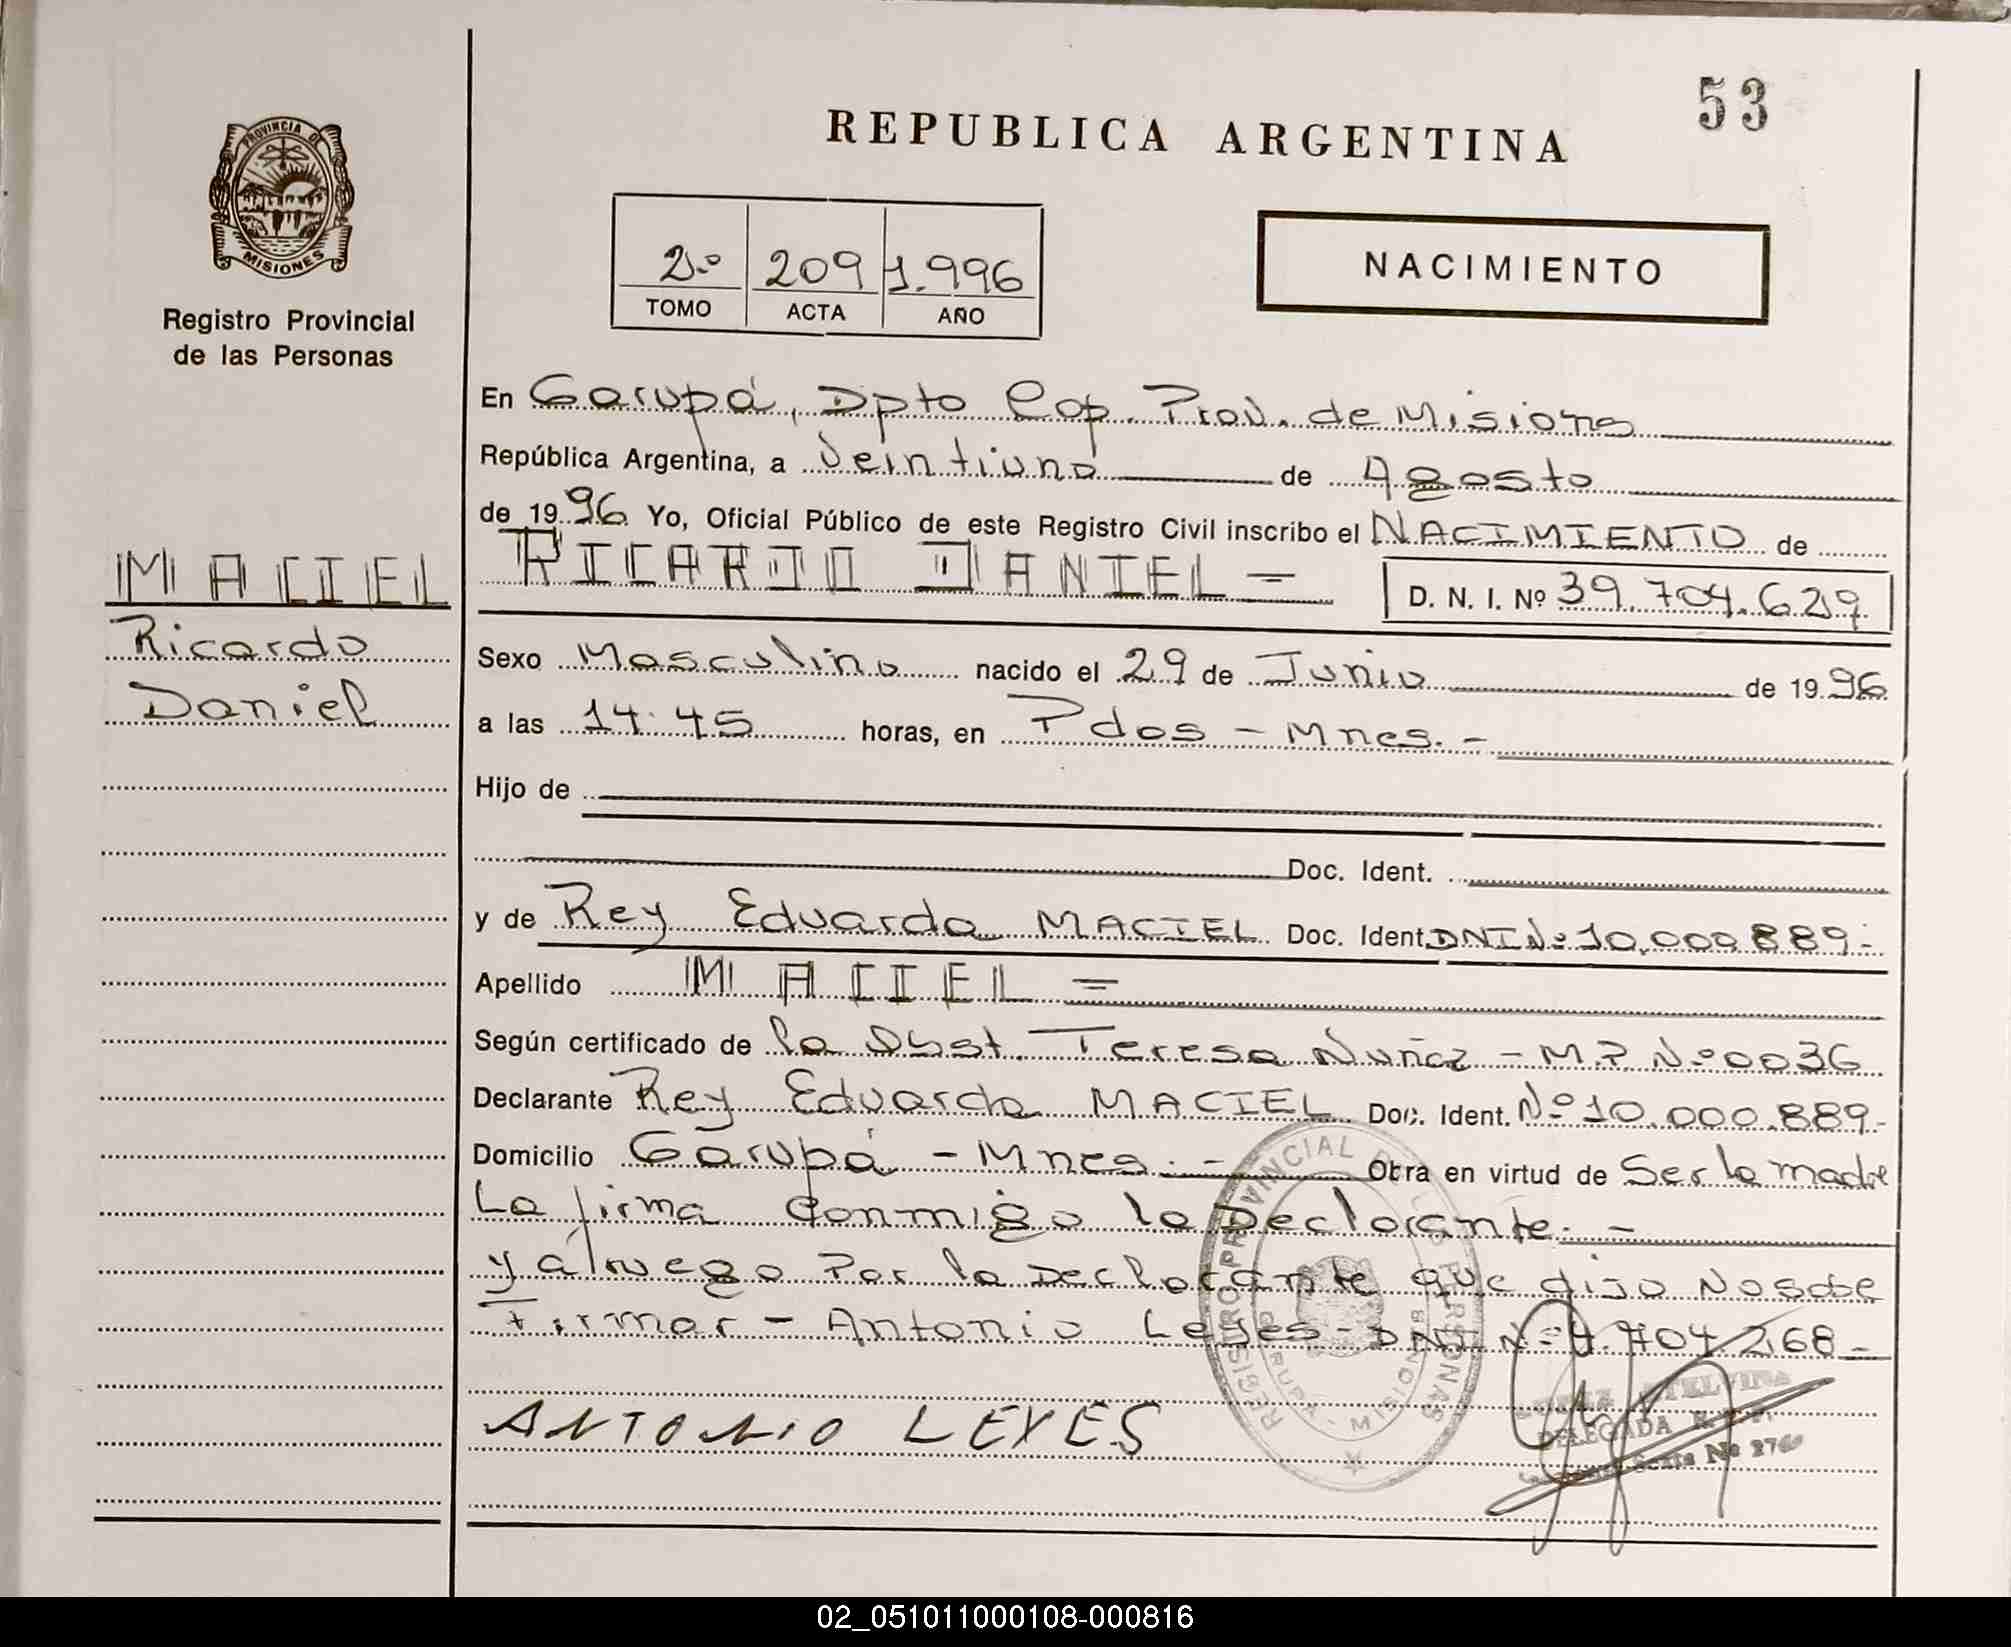 53
REPUBLICA ARGENTINA
PROVINCIA DE
MISIONES
Registro Provincial
de las Personas
2º 209 1.996
TOMO ACTA AÑO
NACIMIENTO
En Garupá, Dpto Cap. Prov. de Misiones
República Argentina, a Veintiuno de Agosto
de 1996 Yo, Oficial Público de este Registro Civil inscribo el NACIMIENTO de
RICARDO DANIEL = D. N. I. Nº 39.704.629
MACIEL
Ricardo
Daniel
Sexo Masculino nacido el 29 de Junio de 1996
a las 14:45 horas, en Pdas - Mnes. -
Hijo de
Doc. Ident.
y de Rey Eduarda MACIEL Doc. Ident. DNI Nº 10.000.889-
Apellido MACIEL =
Según certificado de la Obst. Teresa Nuñez - M.P. Nº 0036
Declarante Rey Eduarda MACIEL Doc. Ident. Nº 10.000.889-
Domicilio Garupá - Mnes. - Obra en virtud de Ser la madre
La firma Conmigo la Declarante. -
y a ruego Por la Declarante que dijo No sabe
Firmar - Antonio Leyes - DNI Nº 4.704.268 -
ANTONIO LEYES
REGISTRO PROVINCIAL DE LAS PERSONAS
GARUPA - MISIONES
ETELVINA
DELEGADA
02_051011000108-000816